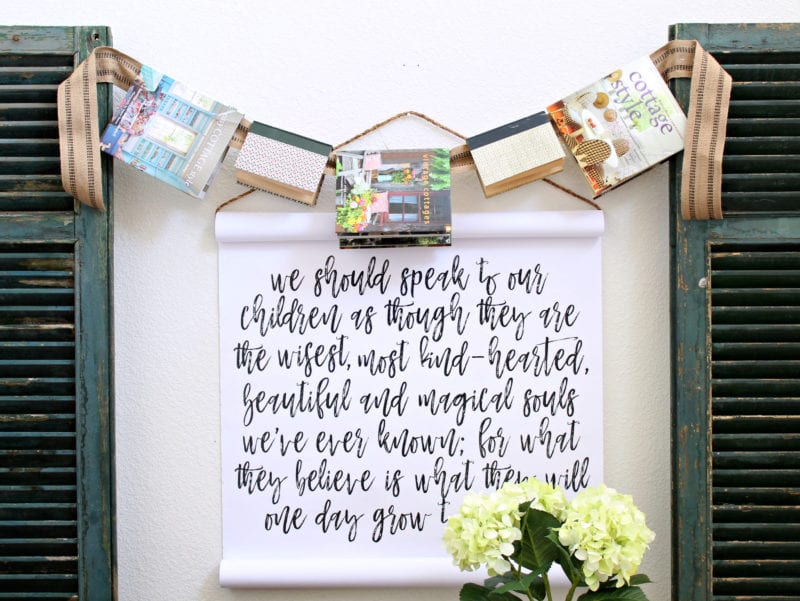 cottage
style
vintage cottages
we should speak to our
children as though they are
the wisest, most kind-hearted,
beautiful and magical souls
we've ever known; for what
they believe is what they will
one day grow t